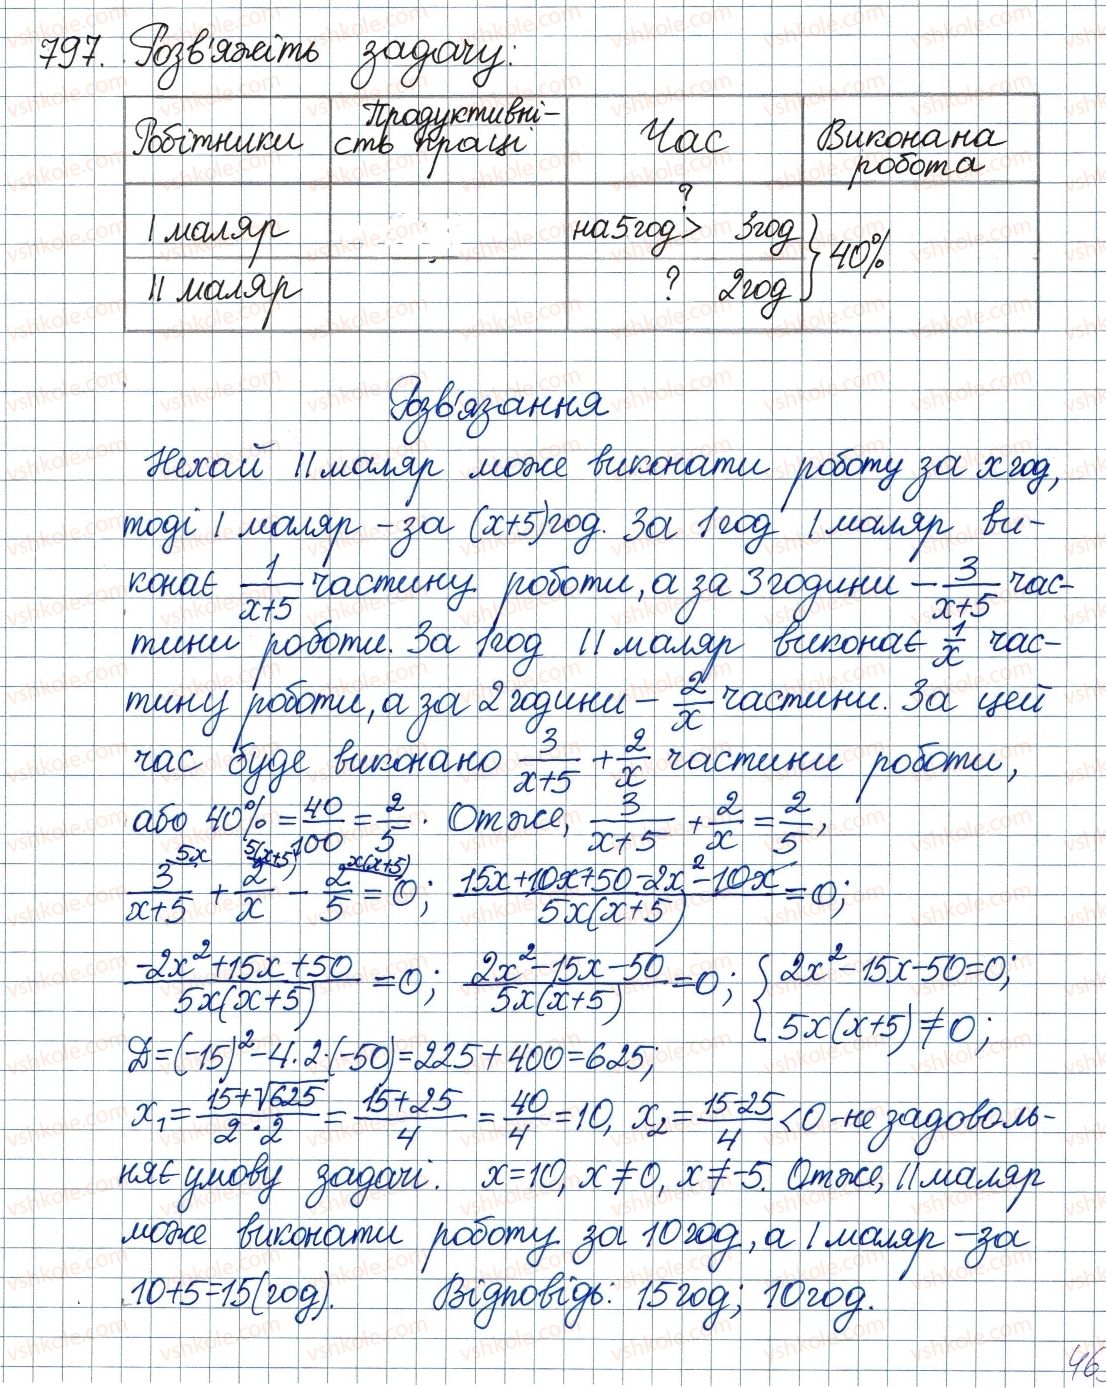 797. Розв'яжіть задачу:
Робітники Продуктивні- Час Виконана
сть праці робота
?
І маляр на 5 год > 3 год } 40%
ІІ маляр ? 2 год
Розв'язання
Нехай ІІ маляр може виконати роботу за x год,
тоді І маляр – за (x+5) год. За 1 год І маляр ви-
конає 1/(x+5) частину роботи, а за 3 години – 3/(x+5) час-
тини роботи. За 1 год ІІ маляр виконає 1/x час-
тину роботи, а за 2 години – 2/x частини. За цей
час буде виконано 3/(x+5) + 2/x частини роботи,
або 40% = 40/100 = 2/5. Отже, 3/(x+5) + 2/x = 2/5,
5x 5(x+5) x(x+5)
3/(x+5) + 2/x – 2/5 = 0; (15x+10x+50–2x²–10x)/(5x(x+5)) = 0;
(–2x²+15x+50)/(5x(x+5)) = 0; (2x²–15x–50)/(5x(x+5)) = 0; { 2x²–15x–50=0;
5x(x+5)≠0;
Д=(–15)²–4·2·(–50)=225+400=625;
x₁ = (15+√625)/(2·2) = (15+25)/4 = 40/4 = 10, x₂ = (15-25)/4 < 0 – не задоволь-
няє умову задачі. x=10, x≠0, x≠–5. Отже, ІІ маляр
може виконати роботу за 10 год, а І маляр – за
10+5=15(год). Відповідь: 15 год; 10 год.
46